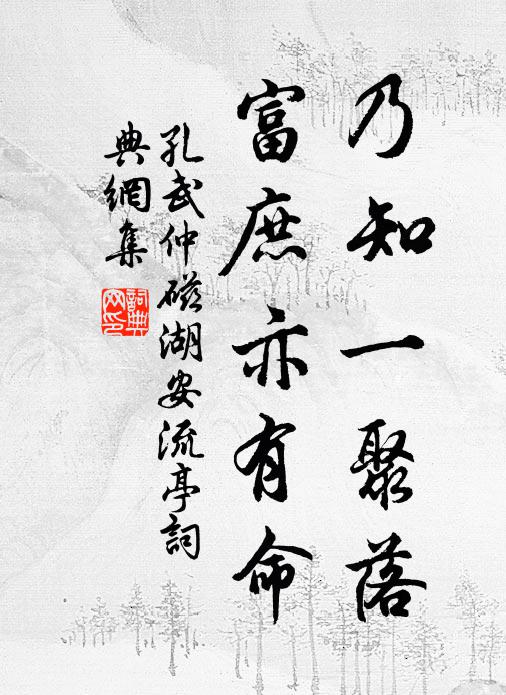 乃知一聚落
富庶亦有命
孔武仲磁湖安流亭詞
典網集
詞典網印